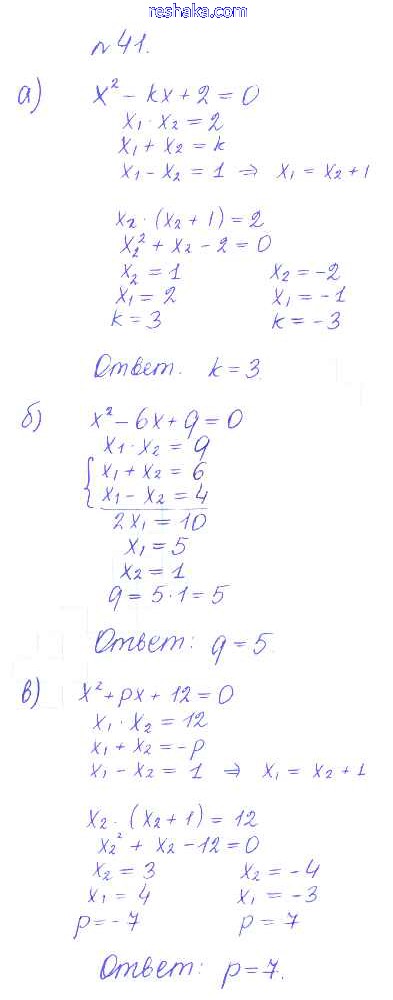 reshaka.com
№41.
а) x² - kx + 2 = 0
x₁ · x₂ = 2
x₁ + x₂ = k
x₁ - x₂ = 1 ⇒ x₁ = x₂ + 1
x₂ · (x₂ + 1) = 2
x₂² + x₂ - 2 = 0
x₂ = 1 x₂ = -2
x₁ = 2 x₁ = -1
k = 3 k = -3
Ответ. k = 3
б) x² - 6x + q = 0
x₁ · x₂ = q
{ x₁ + x₂ = 6
x₁ - x₂ = 4
2x₁ = 10
x₁ = 5
x₂ = 1
q = 5 · 1 = 5
Ответ: q = 5.
в) x² + px + 12 = 0
x₁ · x₂ = 12
x₁ + x₂ = -p
x₁ - x₂ = 1 ⇒ x₁ = x₂ + 1
x₂ · (x₂ + 1) = 12
x₂² + x₂ - 12 = 0
x₂ = 3 x₂ = -4
x₁ = 4 x₁ = -3
p = -7 p = 7
Ответ: p = 7.